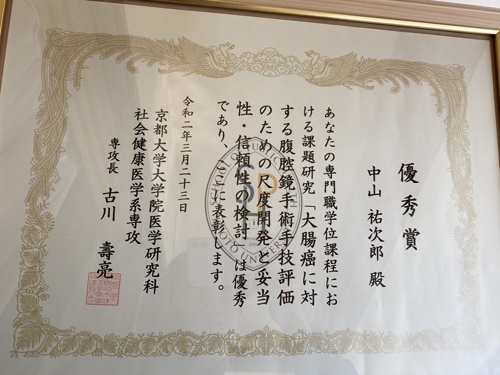 優秀賞
中山 祐次郎 殿
あなたの専門職学位課程にお
ける課題研究「大腸癌に対
する腹腔鏡手術手技評価
のための尺度開発と妥当
性・信頼性の検討」は優秀
であり、ここに表彰します。
令和二年三月二十三日
京都大学大学院医学研究科
社会健康医学系専攻
専攻長 古川 壽亮